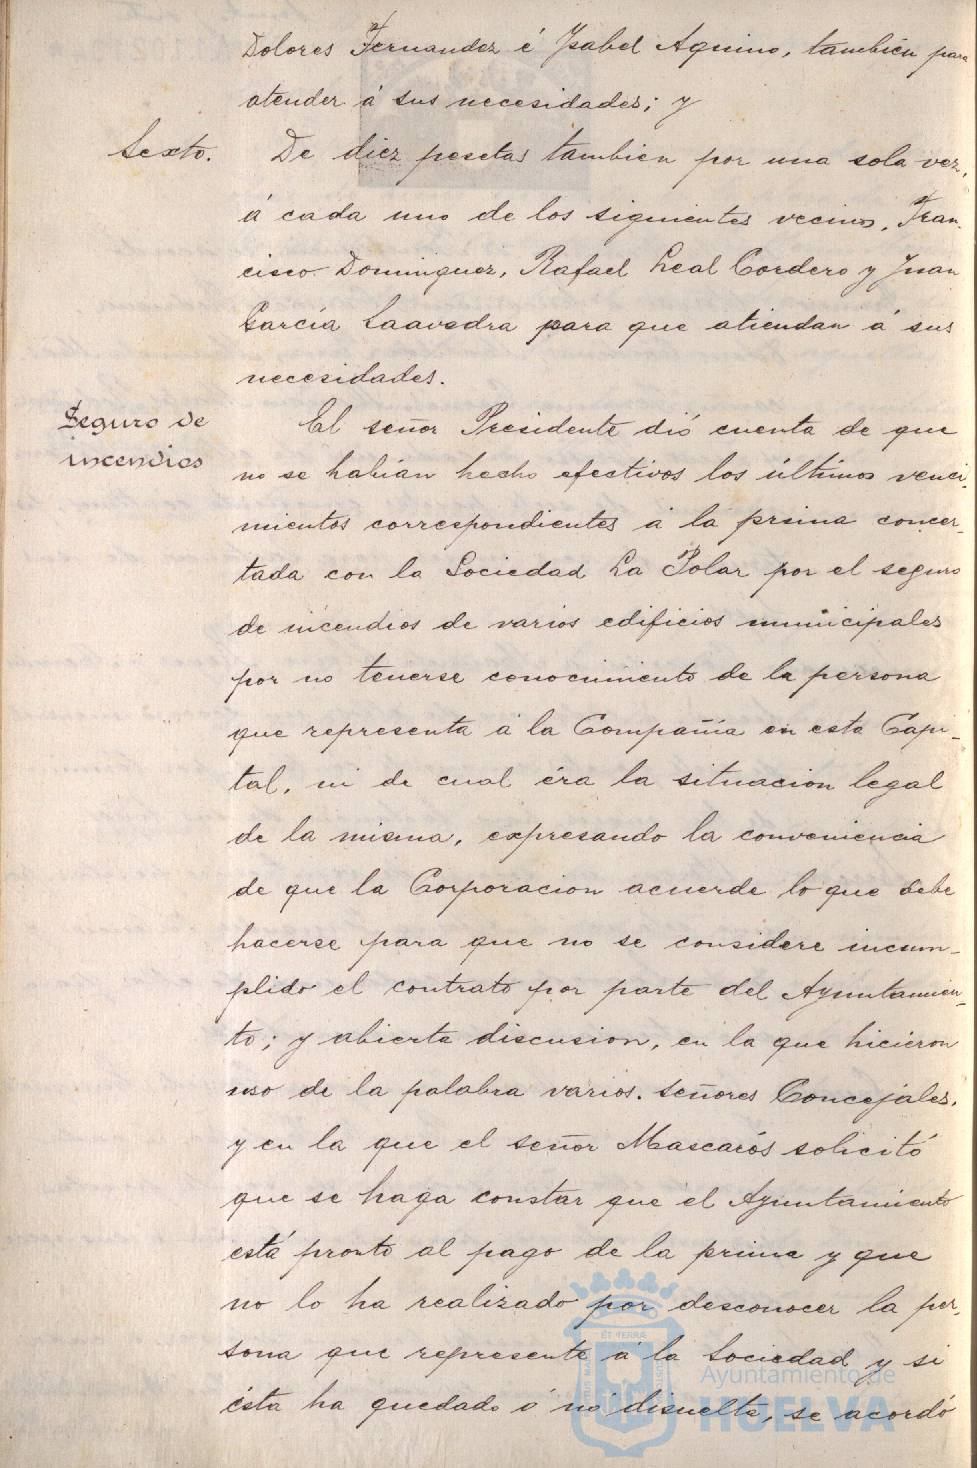 Dolores Fernandez é Ysabel Aquino, tambien para
atender á sus necesidades; y
Sexto. De diez pesetas tambien por una sola vez,
á cada uno de los siguientes vecinos, Fran-
cisco Dominguez, Rafael Leal Cordero y Juan
García Saavedra para que atiendan á sus
necesidades.
Seguro de
incendios
El señor Presidente dió cuenta de que
no se habían hecho efectivos los últimos venci-
mientos correspondientes á la prima concer-
tada con la Sociedad La Polar por el seguro
de incendios de varios edificios municipales
por no tenerse conocimiento de la persona
que representa á la Compañía en esta Capi-
tal, ni de cual éra la situacion legal
de la misma, expresando la conveniencia
de que la Corporacion acuerde lo que debe
hacerse para que no se considere incum-
plido el contrato por parte del Ayuntamien-
to; y abierta discusion, en la que hicieron
uso de la palabra varios señores Concejales,
y en la que el señor Mascarós solicitó
que se haga constar que el Ayuntamiento
está pronto al pago de la prima y que
no lo ha realizado por desconocer la per-
sona que represente á la Sociedad y si
ésta ha quedado ó no disuelta, se acordó
Ayuntamiento de
HUELVA